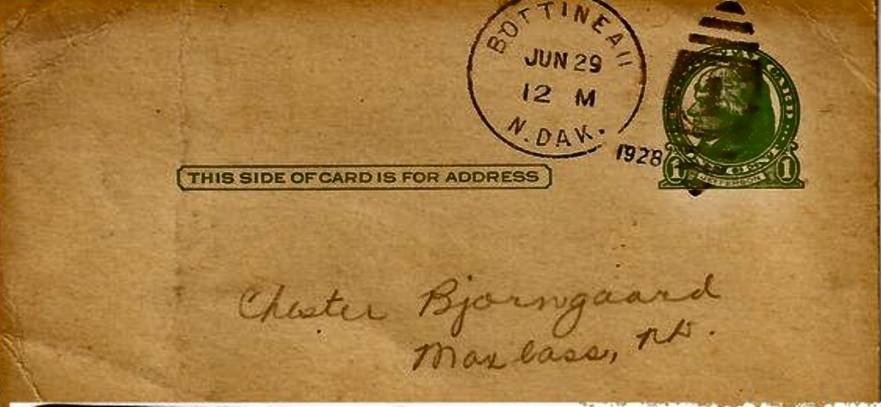 BOTTINEAU
JUN 29
12 M
N. DAK.
1928
1 JEFFERSON 1
THIS SIDE OF CARD IS FOR ADDRESS
Chester Bjorngaard
Maxbass, ND.